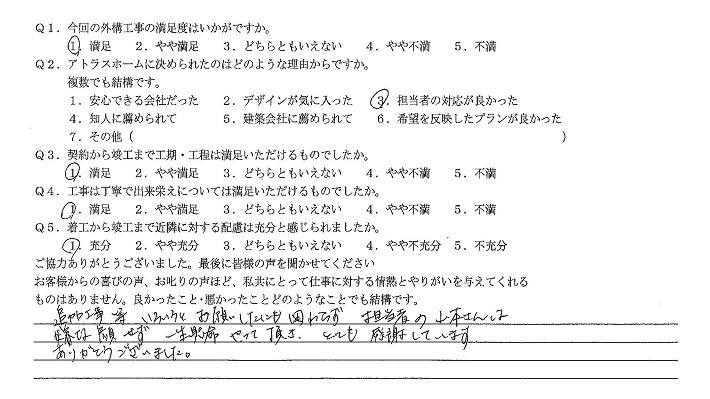 Q1．今回の外構工事の満足度はいかがですか。
1．満足　2．やや満足　3．どちらともいえない　4．やや不満　5．不満
Q2．アトラスホームに決められたのはどのような理由からですか。
複数でも結構です。
1．安心できる会社だった　2．デザインが気に入った　3．担当者の対応が良かった
4．知人に薦められて　5．建築会社に薦められて　6．希望を反映したプランが良かった
7．その他（　）
Q3．契約から竣工まで工期・工程は満足いただけるものでしたか。
1．満足　2．やや満足　3．どちらともいえない　4．やや不満　5．不満
Q4．工事は丁寧で出来栄えについては満足いただけるものでしたか。
1．満足　2．やや満足　3．どちらともいえない　4．やや不満　5．不満
Q5．着工から竣工まで近隣に対する配慮は充分と感じられましたか。
1．充分　2．やや充分　3．どちらともいえない　4．やや不充分　5．不充分
ご協力ありがとうございました。最後に皆様の声を聞かせてください
お客様からの喜びの声、お叱りの声ほど、私共にとって仕事に対する情熱とやりがいを与えてくれる
ものはありません。良かったこと・悪かったことどのようなことでも結構です。
追加工事等 いろいろと お願いしたにも 関わらず 担当者の 山本さんは
顔せず 一生懸命 やって頂き、とても 感謝しています
ありがとうございました。